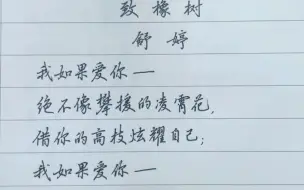 致橡树
舒婷
我如果爱你—
绝不像攀援的凌霄花，
借你的高枝炫耀自己；
我如果爱你—